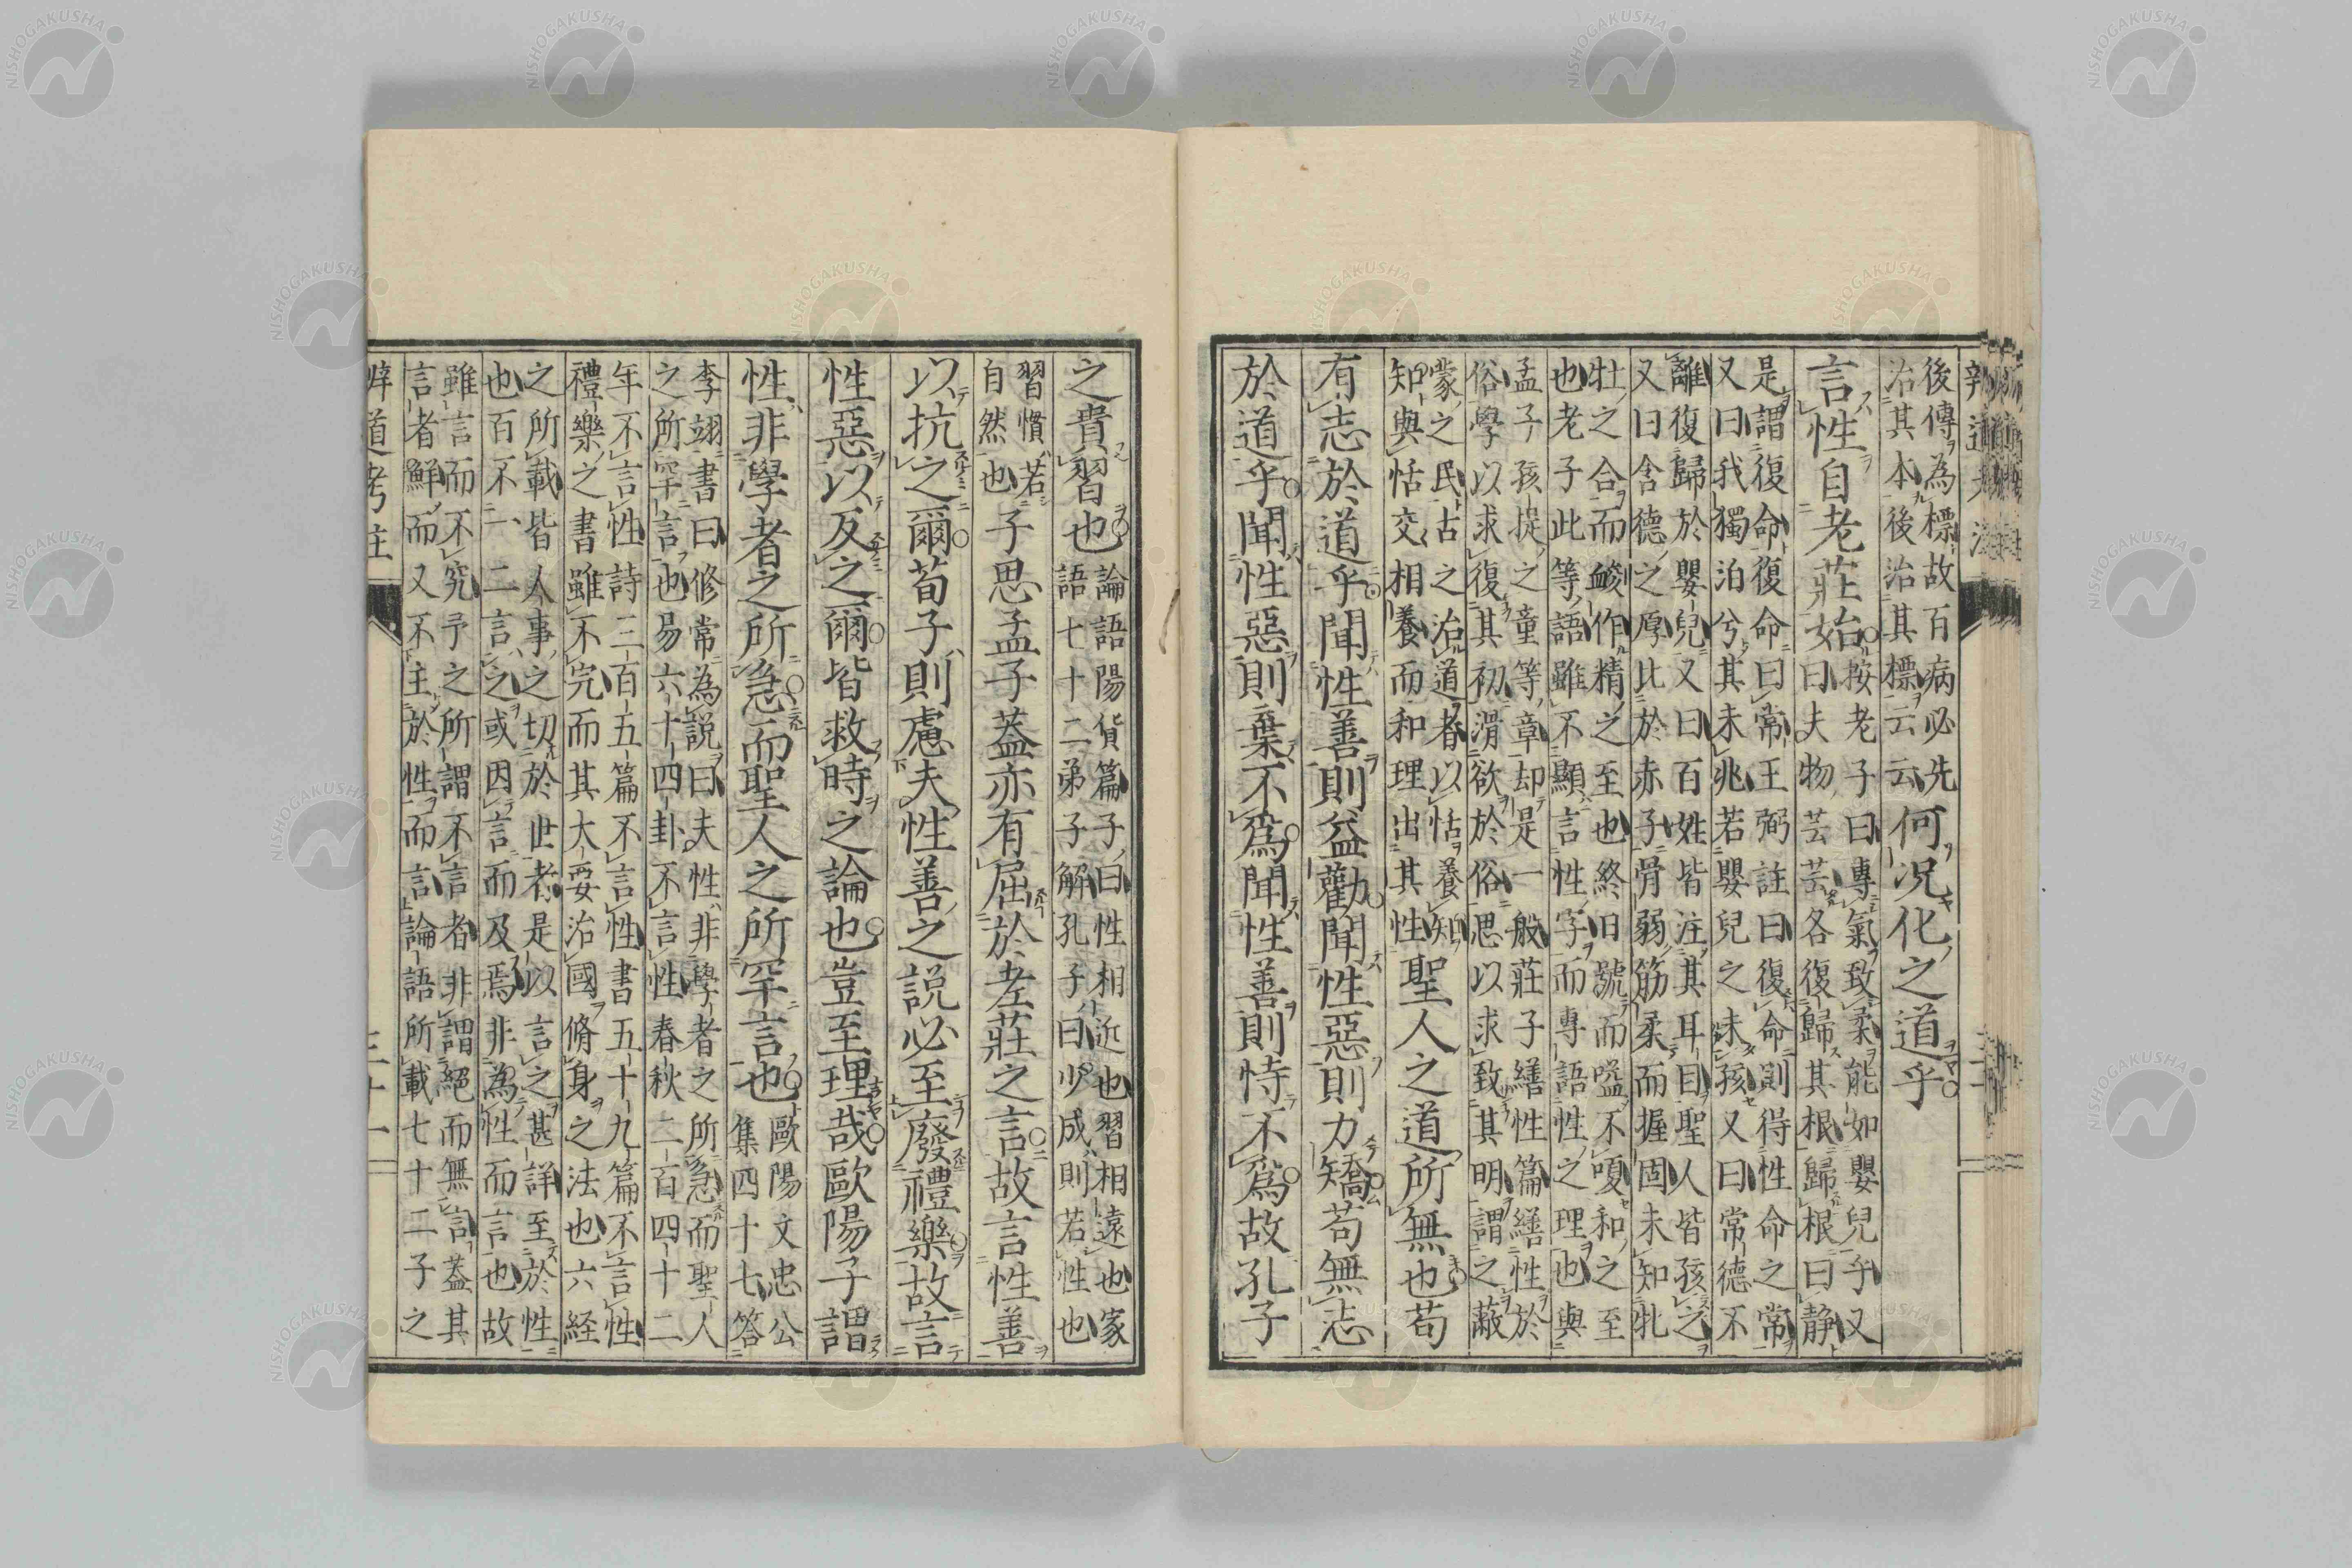 後傳為標故百病必先
治其本後治其標云云何況化之道乎
言性自老莊始按老子曰專氣致柔能如嬰兒乎又
曰夫物芸芸各復歸其根歸根曰靜
是謂復命復命曰常王弼註曰復命則得性命之常
又曰我獨泊兮其未兆若嬰兒之未孩又曰常德不
離復歸於嬰兒又曰百姓皆注其耳目聖人皆孩之
又曰含德之厚比於赤子骨弱筋柔而握固未知牝
牡之合而䘒作精之至也終日號而嗌不嗄和之至
也老子此等語雖不顯言性字而專語性之理也與
孟子孩提之童等章却是一般莊子繕性篇繕性於
俗學以求復其初滑欲於俗思以求致其明謂之蔽
蒙之民古之治道者以恬養知
知與恬交相養而和理出其性聖人之道所無也苟
有志於道乎聞性善則益勸聞性惡則力矯苟無志
於道乎聞性惡則棄不為聞性善則恃不為故孔子
之貴習也論語陽貨篇子曰性相近也習相遠也家
語七十二弟子解孔子曰少成則若性也
習慣若
自然也子思孟子蓋亦有屈於老莊之言故言性善
以抗之爾荀子則慮夫性善之說必至廢禮樂故言
性惡以反之爾皆救時之論也豈至理哉歐陽子謂
性非學者之所急而聖人之所罕言也歐陽文忠公
集四十七答
李翊書曰修常為說曰夫性非學者之所急而聖人
之所罕言也易六十四卦不言性春秋二百四十二
年不言性詩三百五篇不言性書五十九篇不言性
禮樂之書雖不完而其大要治國脩身之法也六経
之所載皆人事之切於世者是以言之甚詳至於性
也百不一二言之或因言而及焉非為性而言也故
雖言而不究予之所謂不言者非謂絕而無言蓋其
言者鮮而又不主於性而言論語所載七十二子之
辨道考注
三十一